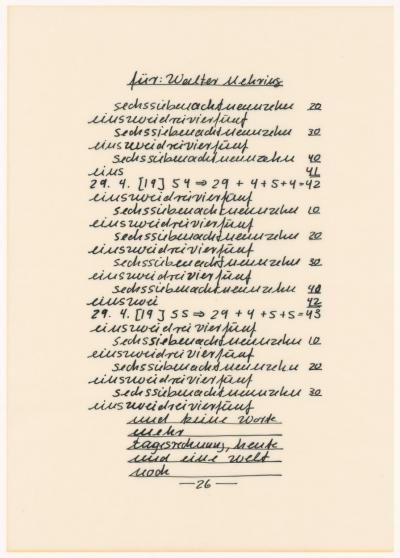 für: Walter Mehring
sechssiebenachtneunzehn 20
einszweidreivierfünf
sechssiebenachtneunzehn 30
einszweidreivierfünf
sechssiebenachtneunzehn 40
eins 41
29. 4. [19] 54 ⇒ 29 + 4+5+4=42
einszweidreivierfünf
sechssiebenachtneunzehn 10
einszweidreivierfünf
sechssiebenachtneunzehn 20
einszweidreivierfünf
sechssiebenachtneunzehn 30
einszweidreivierfünf
sechssiebenachtneunzehn 40
einszwei 42
29. 4. [19] 55 ⇒ 29 + 4+5+5=43
einszweidreivierfünf
sechssiebenachtneunzehn 10
einszweidreivierfünf
sechssiebenachtneunzehn 20
einszweidreivierfünf
sechssiebenachtneunzehn 30
einszweidreivierfünf
und keine Worte
mehr
tagesrechnung, heute
und eine welt
noch
—26—